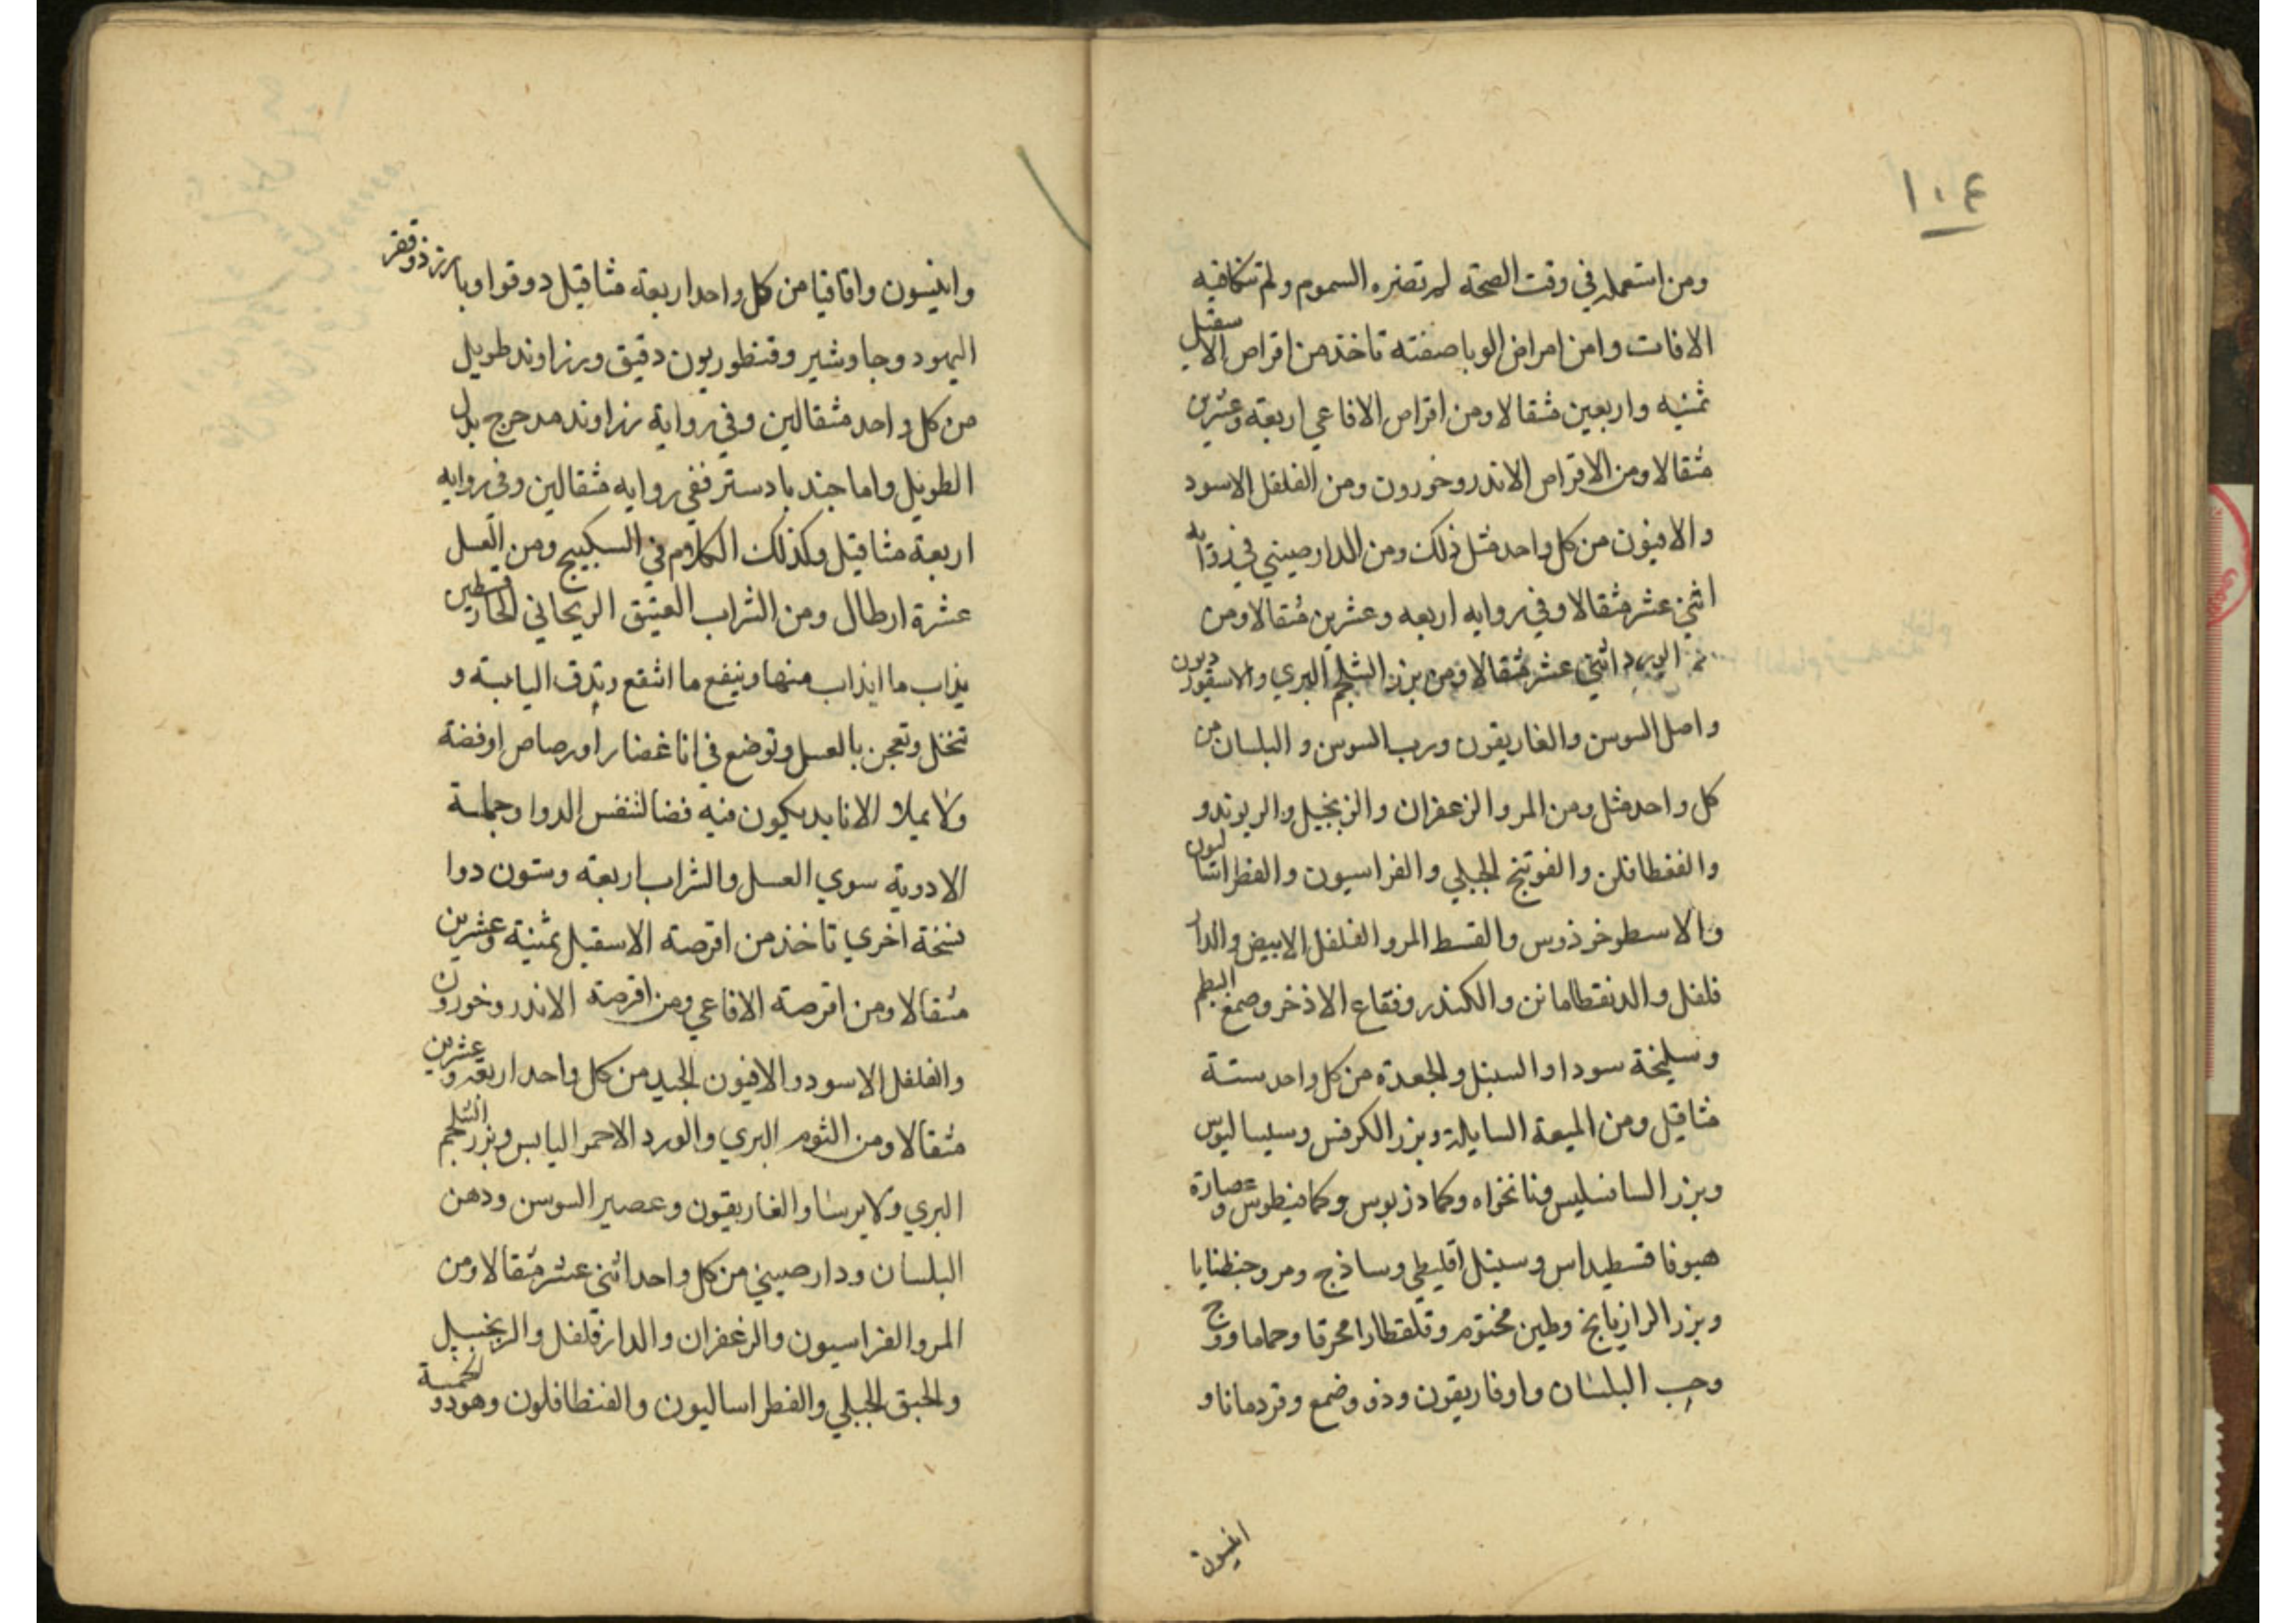 ١٠٤
ومن استعمله في وقت الصحة لم تضره السموم ولم تنكافيه
الافات وامن امراض الوبا صفته تاخذ من اقراص الاسقيل
ثمنيه واربعين مثقالا ومن اقراص الافاعي اربعة وعشرين
مثقالا ومن الاقراص الاندروخورون ومن الفلفل الاسود
والافيون من كل واحد مثل ذلك ومن الدارصيني في رواية
اثني عشر مثقالا وفي روايه اربعه وعشرين مثقالا ومن
الورد اثني عشر مثقالا ومن بزر الشلجم البري والاسقورديون
واصل السوسن والغاريقون ورب السوس و البلسان من
كل واحد مثل ومن المر والزعفران والزنجبيل والريوند و
والفنطافلن والفوتنج الجبلي والفراسيون والفطراساليون
والاسطوخوذوس والقسط المر والفلفل الابيض والدار
فلفل والدنقطامانن والكندر وفقاع الاذخر وصمغ البطم
وسليخة سودا والسنبل والجعدة من كل واحد ستة
مثاقيل ومن الميعة السايلة وبزر الكرفس وسيساليوس
وبزر السافسليس ونانخواه وكمادزيوس وكمافيطوس وعصارة
هيوفاقسطيداس وسنبل اقليطي وساذج ومر وجنطيانا
وبزر الرازيانج وطين مختوم وقلقطارا محرقا وحماما ووج
وحب البلسان واوفاريقون وذو وضمع وقردمانا و
انيسون
وانيسون واقاقيا من كل واحد اربعة مثاقيل دوقوا وبارزذ وقفر
اليهود وجاوشير وقنطوريون دقيق وزراوند طويل
من كل واحد مثقالين وفي رواية زراوند مدحرج بدل
الطويل واما جندبادستر ففي روايه مثقالين وفي روايه
اربعة مثاقيل وكذلك الكلام في السكبينج ومن العسل
عشرة ارطال ومن الشراب العتيق الريحاني الحار قسطين
يذاب ما ايذاب منها وينفع ما انقع وتدق اليابسة و
تنخل وتعجن بالعسل وتوضع في انا غضار او رصاص او فضة
ولا يملا الانا بد يكون فيه فضا لتنفس الدوا وجملة
الادوية سوي العسل والشراب اربعة وستون دوا
نسخة اخري تاخذ من اقرصة الاسقيل ثمنية وعشرين
مثقالا ومن اقرصة الافاعي ومن اقرصة الاندروخورون
والفلفل الاسود والافيون الجيد من كل واحد اربعة وعشرين
مثقالا ومن الثوم البري والورد الاحمر اليابس وبزر الشلجم
البري ولايرسا والغاريقون وعصير السوسن ودهن
البلسان ودارصيني من كل واحد اثني عشر مثقالا ومن
المر والفراسيون والزعفران والدارفلفل والزنجبيل
والحبق الجبلي والفطراساليون والفنطافلون وهو ذو الخمسة